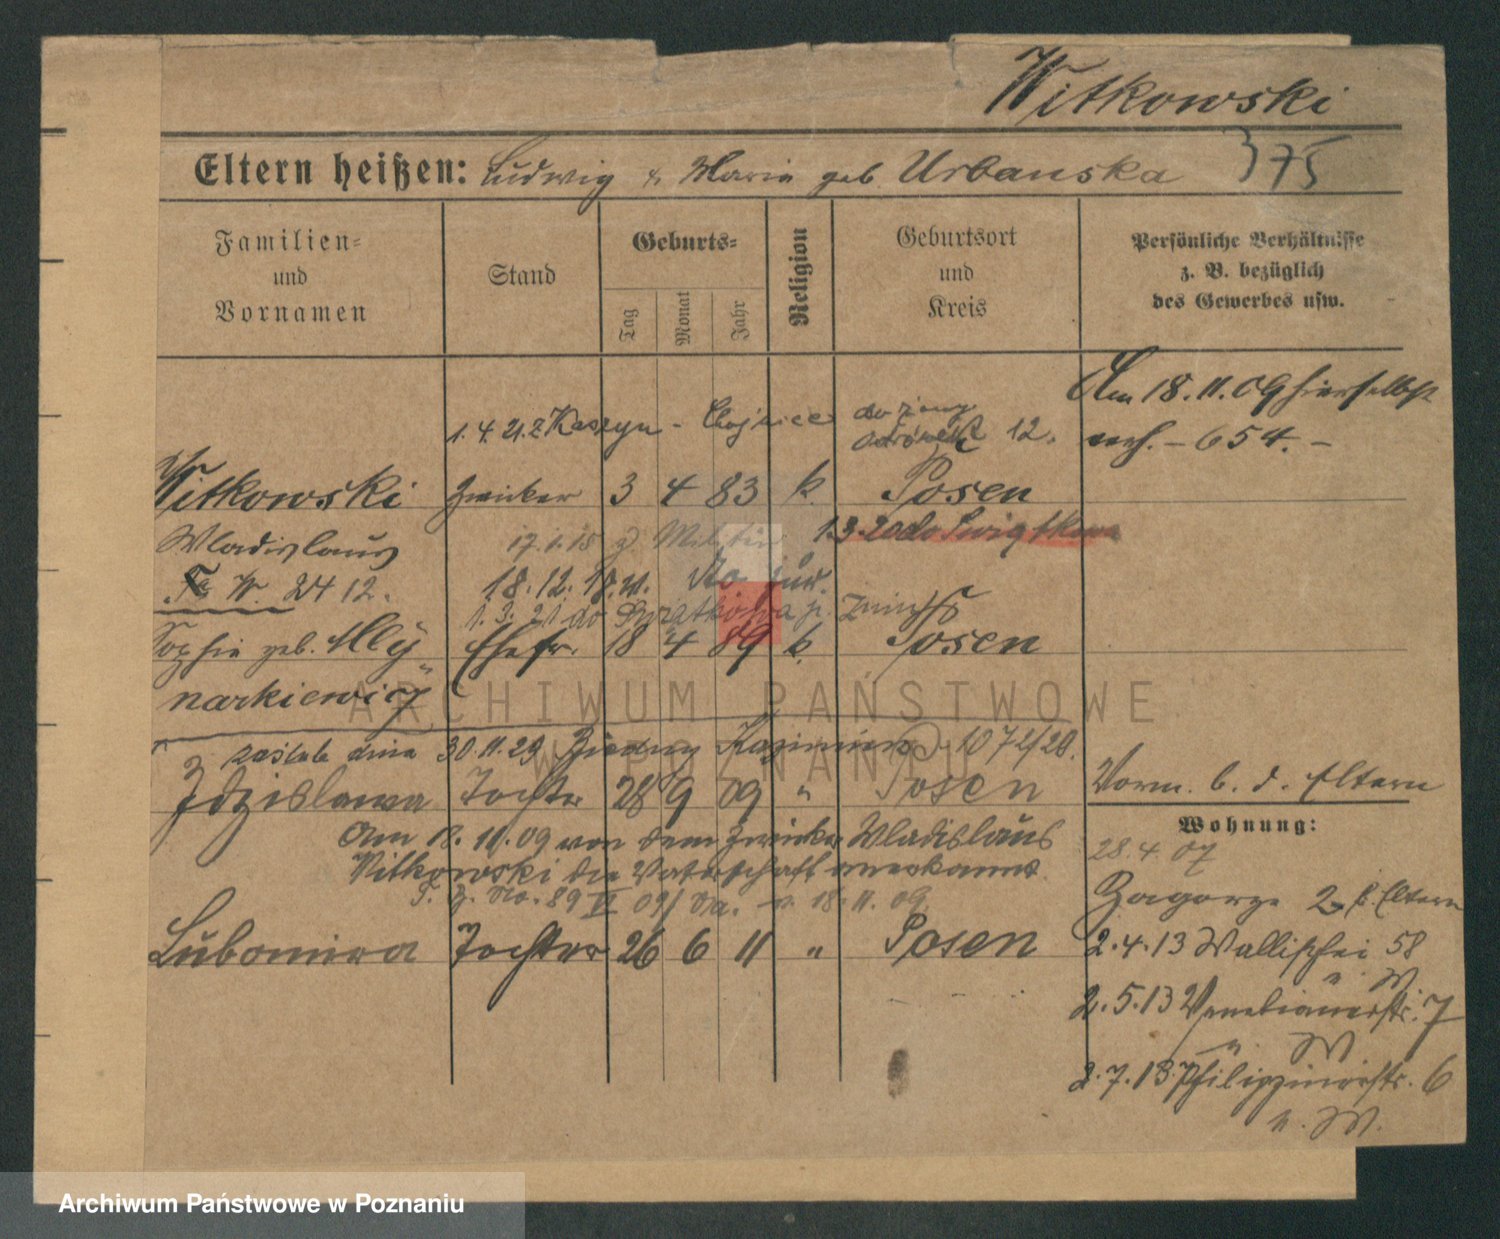 Witkowski
Eltern heißen: Ludwig & Maria geb. Urbanska 375
Familien- und Vornamen
Stand
Geburts-
Tag
Monat
Jahr
Religion
Geburtsort und Kreis
Persönliche Verhältnisse z. B. bezüglich des Gewerbes usw.
Am 18.11.09 hierselbst
verh. – 654. –
1.4.21. z Kcszyn - Chojnice do żony 12.
Witkowski Zwicker 3 4 83 k. Posen
Wladislaus 17.1.15 z Militär 1.3.20 do Swiątkowa
W. 24 12. 18.12.18. v. zur.
1.3.21 do Swiątkowa p. Żnin
Sophie geb. Mly Ehefr. 18 4 89 k. Posen
narkiewicz
zaślub. dnia 30.11.29 Kazimierz 1072/28.
Zdzislawa Tochter 28 9 09 " Posen
Vorm. b. d. Eltern
Am 18.11.09 von dem Zwicker Wladislaus
Witkowski die Vaterschaft anerkannt.
J. No. 89 VI 09/ v. 18.11.09.
Lubomira Tochter 26 6 11 " Posen
Wohnung:
28.4.07
Zagorze 2 b. Eltern
2.4.13 Wallischei 58
n. W.
2.5.13 Venetianerstr. 7
n. W.
2.7.13 Philippinerstr. 6
n. W.
ARCHIWUM PAŃSTWOWE
W POZNANIU
Archiwum Państwowe w Poznaniu